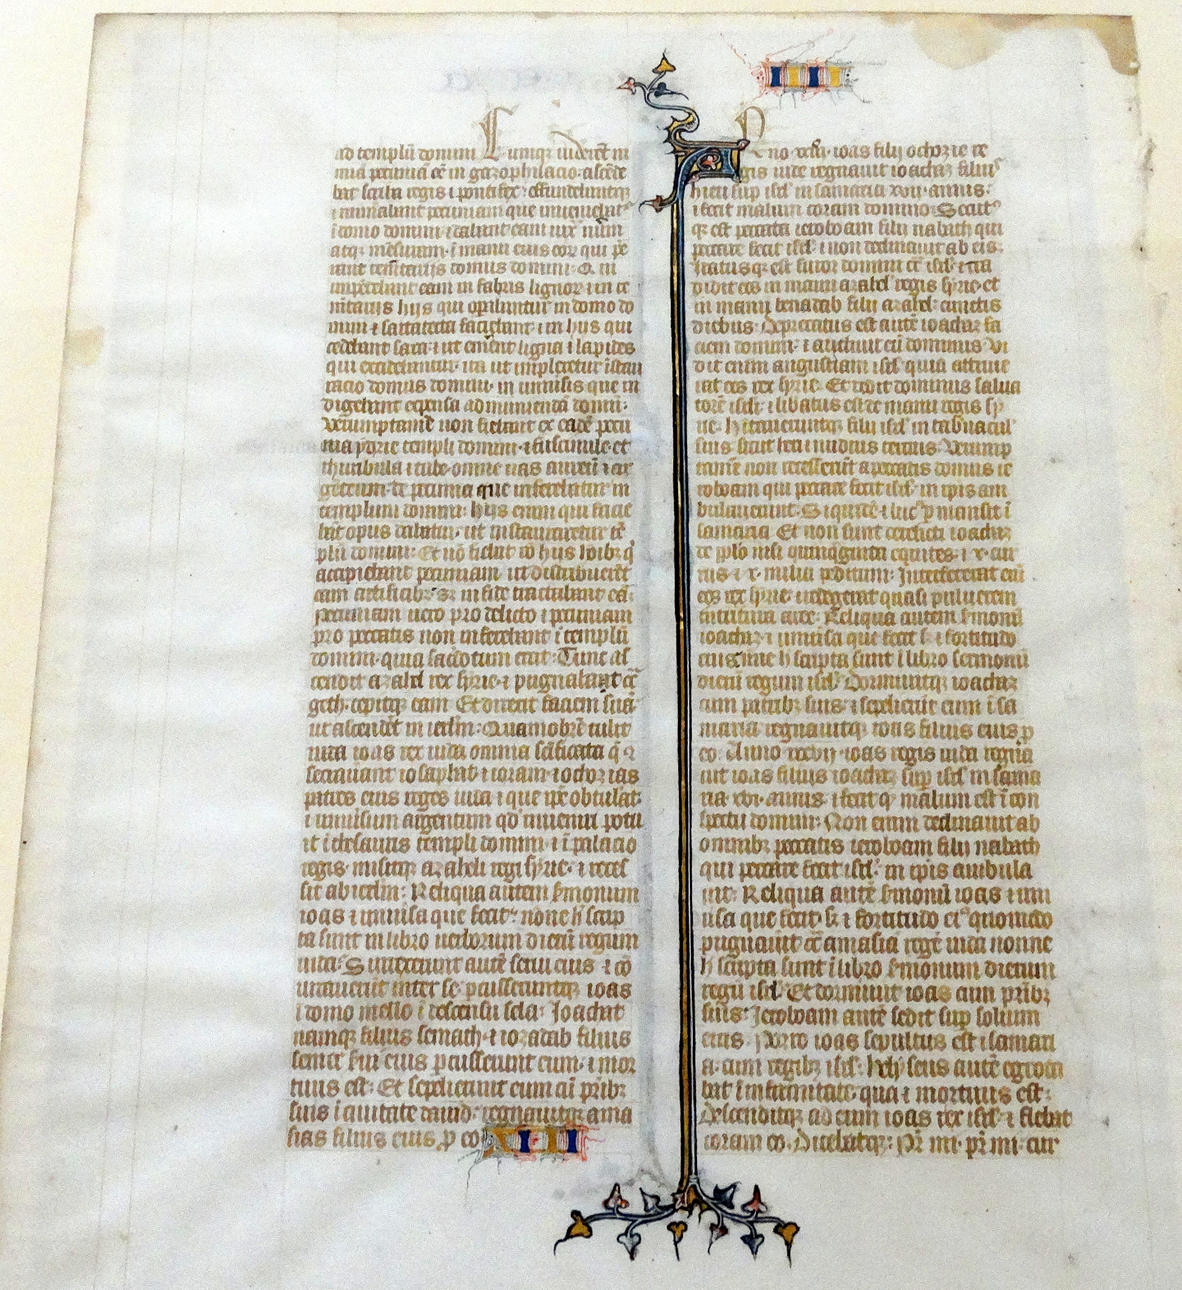 IIII
ad templū domini · Cumqꝫ uiderēt ni
mia pecunia ēē in gazophilacio · ascēde
bat scriba regis ⁊ pontifex · effundebantqꝫ
⁊ numerabant pecuniam que inueniebat᷑
ī domo domini · ⁊ dabant eam iux᷑ nūm
atqꝫ mēsuram · ī manu eius coꝝ qui pre
erant cemētariis domus domini · Q ui
impēdebant eam in fabris lignoꝝ ⁊ in ce
mītariis hiis qui opabantur in domo do
mini ⁊ sartatecta faciebant · ⁊ in hiis qui
cedebant saxa · ⁊ ut emēnt ligna ⁊ lapides
qui excidebantur · ita ut impleretur ī instau
racio domus domini · in uniūsis que in
digebant expensa ad muniendā domū ·
Verumptamē non fiebant ex eadē pecu
nia ydrie templi domini · ⁊ fuscinule · et
thuribula ⁊ tube · omne uas aureū ⁊ ar
genteum · de pecunia que inferebatur in
templum domini · Hiis enim qui facie
bāt opus dabatur · ut instauraretur tē
plū domini · Et nō fiebat rō hiis hoībꝫ q̄
accipiebant pecuniam ut distribuerēt
eam artificibꝫ · sꝫ in fide tractabant eā ·
pecuniam uero pro delicto ⁊ pecuniam
pro peccatis non inferebant ī templū
domini · quia sacerdotum erat · Tunc as
cendit azahel rex syrie · ⁊ pugnabat cᵃ
geth · cepitqꝫ eam · Et direxit faciem suā
ut ascendēt in ierlm · Quamobrē tulit
iuda ioas rex iuda omnia sc̄ificata q̄
secrauant iosaphat ⁊ ioram · ⁊ ochozias
patres eius reges iuda · ⁊ que ipe obtulat ·
⁊ uniūsum argentum qd̄ inueniri potu
it ī thesauris templi domini · ⁊ ī palacio
regis · misitqꝫ azaheli regi syrie · ⁊ reces
sit ab ierlm · Reliqua autem s̄monum
ioas ⁊ uniūsa que fecit · nonne h̄ scrip
ta sunt in libro uerborum dierū regum
iuda · Surrexerunt autē serui eius · ⁊ cō
iurauerunt inter se · pcusseruntqꝫ ioas
ī domo mello ī descensu sela · Joachat
namqꝫ filius semath · ⁊ iozabab filius
somer s̄ui eius pcusserunt eum · ⁊ mor
tuus est · Et sepelierunt eum cū prībꝫ
suis ī ciuitate dauid · regnauitqꝫ ama
sias filius eius p eo XIII
Anno xxiij · ioas filij ochozie re
gis iude regnauit ioachaz filius
hieu sup isrl' in samaria xvii · annis ·
⁊ fecit malum coram domino · Secut᷒
qꝫ est peccata ieroboam filij nabath qui
peccare fecit isrl' · ⁊ non declinauit ab eis ·
Iratusqꝫ est furor domini cōt̄ isrl' · ⁊ tra
didit eos in manu azahel regis syrie et
in manu benadab filij azahel · cunctis
diebus · Depcatus est autē ioachaz fa
ciem domini · ⁊ audiuit eū dominus · Vi
dit enim angustiam isrl' quia attriue
rat eos rex syrie · Et dedit dominus salua
torē isrl' · ⁊ libatus est de manu regis sy
rie · Hitaueruntqꝫ filij isrl' in tabnacul'
suis sicut heri ⁊ nudius tercius · Verump
tamē non recesserūt a peccatis domus ie
roboam qui peccare fecit isrl' in ipis am
bulauerunt · Siquidē ⁊ luc᷒ pmansit ī
samaria · Et non sunt derelicti ioachaz
de pplo nisi quinquaginta equites · ⁊ x · cur
rus · ⁊ x · milia peditum · Interfecerat eni
eos rex syrie · ⁊ redegerat quasi puluerem
ī tritura aree · Reliqua autem s̄monū
ioachaz · ⁊ uniūsa que fecit · s; ⁊ fortitudo
eius · nōne h̄ scripta sunt ī libro sermonū
dierū regum isrl' · Dormiuitqꝫ ioachaz
cum patribꝫ suis · ⁊ sepelierūt eum ī sa
maria · regnauitqꝫ ioas filius eius p
eo · Anno xxxvii · ioas regis iuda regna
uit ioas filius ioachaz sup isrl' in sama
ria xvi · annis · ⁊ fecit qꝫ malum est ī con
spectu domini · Non enim declinauit ab
omnibꝫ peccatis ieroboam filij nabath
qui peccare fecit isrl' · in ipis ambula
uit · Reliqua autē s̄monū ioas ⁊ uni
ūsa que fecit · s; ⁊ fortitudo ei᷒ quomodo
pugnauit cōt̄ amasia regē iuda nonne
h̄ scripta sunt ī libro s̄monum dierum
regū isrl' · Et dormiuit ioas cum prībꝫ
suis · Jeroboam autē sedit sup solium
eius · Porro ioas sepultus est ī samari
a · cum regibꝫ isrl' · Helyseus autē egrota
bat ī infirmitate · qua ⁊ mortuus est ·
Descenditqꝫ ad eum ioas rex isrl' · ⁊ flebat
coram eo · Dicebatqꝫ · Pr̄ mi · pr̄ mi · cur